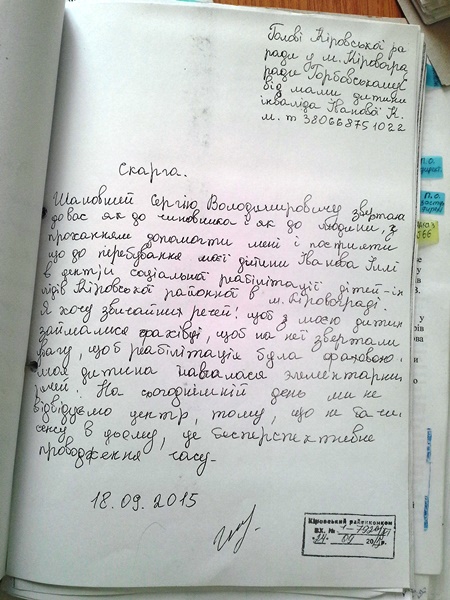 Голові Кіровської ра
ради у м. Кіровогра
ради Горбовському
від мами дитини
інваліда Іванової К.
м. т 380668751022
Скарга.
Шановний Сергію Володимировичу звертаю
до вас як до чиновника і як до людини, з
проханням допомогти мені і посприяти
що до перебування моєї дитини Іванова Іллі
в центрі соціальної реабілітації дітей-ін
лідів Кіровської районної в м. Кіровограді.
Я хочу звичайних речей! щоб з моєю дитин
займалися фахівці, щоб на неї звертали
увагу, щоб реабілітація була фаховою.
моя дитина навчалася элементарни
речей! На сьогоднішній день ми не
відвідуємо центр, тому, що не бачи
сенсу в цьому, це безперспективне
проводження часу.
18.09.2015
Кіровський райвиконком
ВХ. №
"24" 09 2015р.
П.О.
П.О.